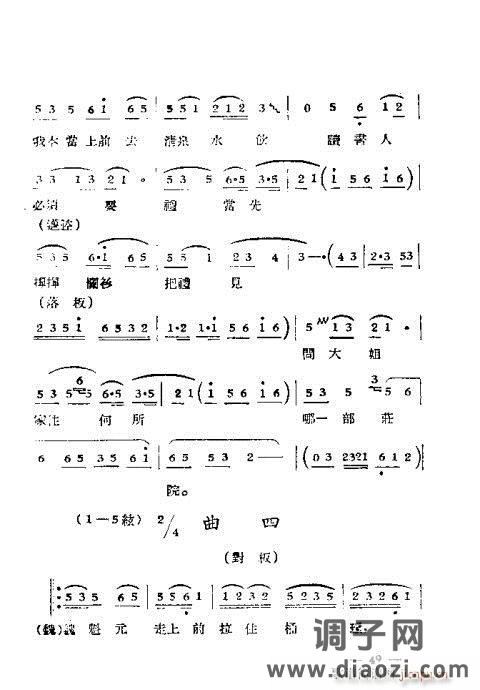 5 3 5 6 i 6 5 | 5 5 1 2 1 2 3 | 0 5 6 1 2 |
我本當上前去 清泉水飲 讀書人
3 3 1 3 2 1 . | 5 3 5 6·5 3·5 | 2 1 ( 1 5 6 1 6 |
必須 要 禮 當先
(邁腔)
5 3 5 6·i 6 5 3·5 | 5 5 1 2 3 4 | 3 — · ( 4 3 | 2·3 5 3 |
撣撣 襴衫 把禮 見
(落板)
2 3 5 1 6 5 3 2 | 1·2 1 1·2 1 | 5 6 1 6 ) | 5 1 3 2 1 · |
問大 姐
5 3 5 5 6 5 6·5 3·5 | 2 1 ( 1 5 6 1 6 ) | 5 3 5 5 3 5 6 |
家住 何所 哪一部莊
6 6 5 3 5 3 5 6 i | 6 5 5 3 2 — | ( 0 3 2321 6 1 2 ) |
院。
(1—5絃) 2/4 曲 四
(對板)
5 3 5 6 5 | 5 5 6 1 | 1 2 3 2 5 2 3 5 | 2 1 2 3 2 |
(魏)魏 魁元 走上前拉住 桶
调子网
www.diaozi.com